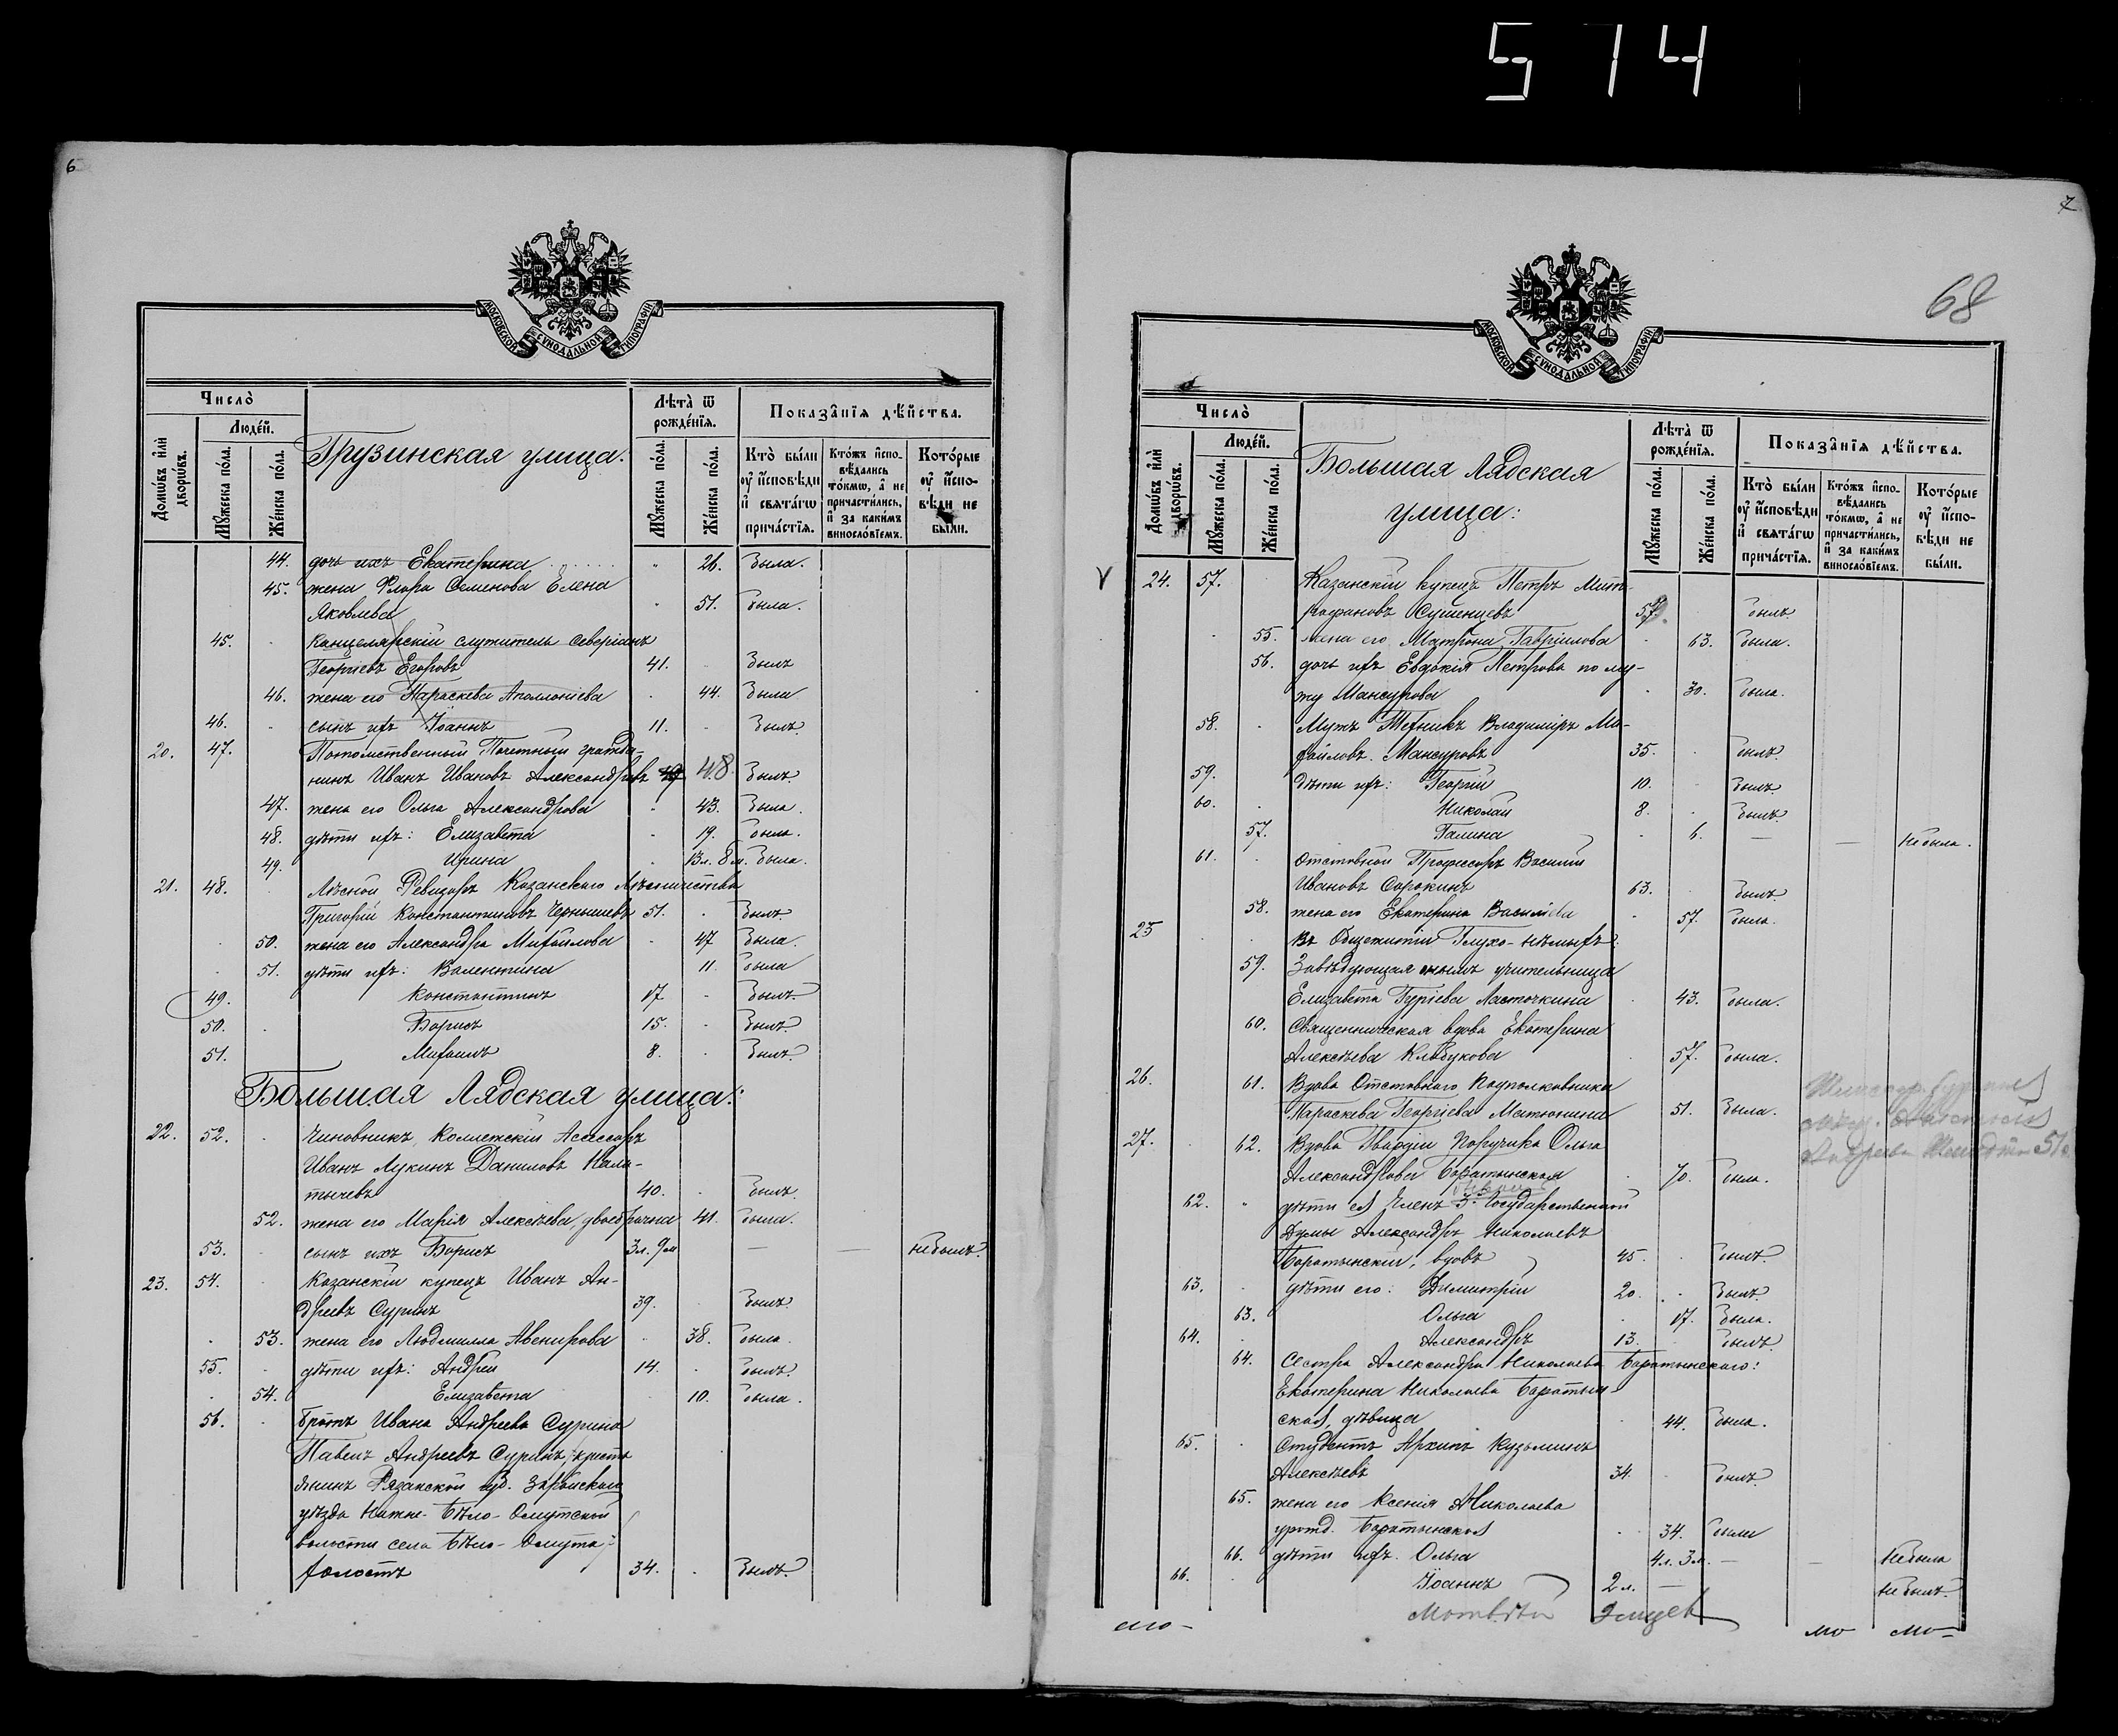 574
6
МОСКОВСКОЙ СѴНОДАЛЬНОЙ ТИПОГРАФІИ
Число̀
Люде́й.
Домѡ́въ и҆лѝ дворѡ́въ.
Мꙋ́жеска по́ла.
Же́нска по́ла.
Грузинская улица.
Лѣ́та ѿ рожде́нїѧ.
Мꙋ́жеска по́ла.
Же́нска по́ла.
Показа́нїѧ дѣ́йства.
Кто̀ бы́ли оу҆ и҆сповѣ́ди и҆ свѧта́гѡ прича́стїѧ.
Кто́жъ и҆сповѣ́дались то́кмѡ, а҆ не причасти́лись, и҆ за каки́мъ виносло́вїемъ.
Кото́рые оу҆ и҆сповѣ́ди не бы́ли.
44. дочь ихъ Екатерина 26. Была.
45. жена Флора Семенова Елена
Яковлева 51. была.
45. Канцелярскій служитель Северіанъ
Георгіевъ Егоровъ 41. Былъ
46. жена его Параскева Аполлоніева 44. Была
46. сынъ ихъ Іоаннъ 11. Былъ.
20. 47. Потомственный Почетный гражда-
нинъ Иванъ Ивановъ Александровъ 48. Былъ.
47. жена его Ольга Александрова 43. Была.
48. дѣти ихъ: Елизавета 19. была.
49. Ирина 13л. 8м. Была.
21. 48. Лѣсной Ревизоръ Казанскаго Лѣсничества
Григорій Константиновъ Чернышевъ 51. былъ.
50. жена его Александра Михайлова 47 Была.
51. дѣти ихъ: Валентина 11. была
49. Константинъ 17 Былъ.
50. Борисъ 15. Былъ.
51. Михаилъ 8. Былъ.
Большая Лядская улица:
22. 52. Чиновникъ, Коллежскій Асессоръ
Иванъ Лукинъ Даниловъ Кала-
тычевъ 40. былъ.
52. жена его Марія Алексѣева, двоебрачна 41. была.
53. сынъ ихъ Борисъ 3л. 9м — — не былъ.
23. 54. Казанскій купецъ Иванъ Ан-
дреевъ Суринъ 39. Былъ.
53. жена его Людмилла Авенирова 38. была.
55. дѣти ихъ: Андрей 14. былъ.
54. Елизавета 10. была.
56. братъ Ивана Андреева Сурина
Павелъ Андреевъ Суринъ, кресть
янинъ Рязанской губ. Зарайскаго
уѣзда Нижне-Бѣло-Омутской
волости села Бѣло-Омута,
холостъ 34. Былъ.
7
68
МОСКОВСКОЙ СѴНОДАЛЬНОЙ ТИПОГРАФІИ
Число̀
Люде́й.
Домѡ́въ и҆лѝ дворѡ́въ.
Мꙋ́жеска по́ла.
Же́нска по́ла.
Большая Лядская
улица:
Лѣ́та ѿ рожде́нїѧ.
Мꙋ́жеска по́ла.
Же́нска по́ла.
Показа́нїѧ дѣ́йства.
Кто̀ бы́ли оу҆ и҆сповѣ́ди и҆ свѧта́гѡ прича́стїѧ.
Кто́жъ и҆сповѣ́дались то́кмѡ, а҆ не причасти́лись, и҆ за каки́мъ виносло́вїемъ.
Кото́рые оу҆ и҆сповѣ́ди не бы́ли.
V 24. 57. Казанскій купецъ Петръ Мит-
рофановъ Сушенцевъ 57. былъ
55. жена его Матрона Гавріилова 63. была.
56. дочь ихъ Евдокія Петрова по му-
жу Мансурова 30. была.
58. Мужъ Техникъ Владиміръ Ми-
хайловъ Мансуровъ 35. былъ.
59. дѣти ихъ: Георгій 10. Былъ.
60. Николай 8. Былъ.
57. Галина 6. — — не была.
61. Отставной Профессоръ Василій
Ивановъ Сорокинъ 63. Былъ.
58. жена его Екатерина Василіева 57. была.
25 Въ Общежитіи Глухо-нѣмыхъ:
59. Завѣдующая онымъ учительница
Елизавета Гуріева Ласточкина 43. была.
60. Священническая вдова Екатерина
Алексѣева Клобукова 57. была.
26. 61. Вдова Отставного Подполковника
Параскева Георгіева Матюнина 51. Была.
27. 62. Вдова Гвардіи Поручика Ольга
Александрова Боратынская 70. была.
62. дѣти ея Членъ 3й Государственной
Думы Александръ Николаевъ
Боратынскій, вдовъ 45. былъ.
63. дѣти его: Димитрій 20. Былъ.
63. Ольга 17. Была.
64. Александръ 13. былъ.
64. Сестра Александра Николаева Боратынскаго:
Екатерина Николаева Боратын-
ская, дѣвица 44. Была.
65. Студентъ Архипъ Кузьминъ
Алексѣевъ 34. былъ.
65. жена его Ксенія Николаева
урожд. Боратынская 34. были
66. дѣти ихъ. Ольга 4л. 3м. — — не была
66. Іоаннъ 2л. — не былъ.